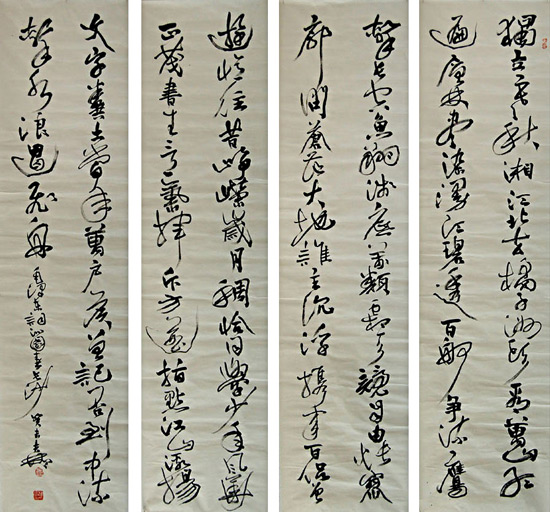 獨立寒秋湘江北去橘子洲頭看萬山紅
遍層林盡染漫江碧透百舸爭流鷹
擊長空魚翔淺底萬類霜天競自由悵寥
廓問蒼茫大地誰主沉浮攜來百侶曾
遊憶往昔崢嶸歲月稠恰同學少年風華
正茂書生意氣揮斥方遒指點江山激揚
文字糞土當年萬戶侯曾記否到中流
擊水浪遏飛舟 毛澤東詞沁園春長沙